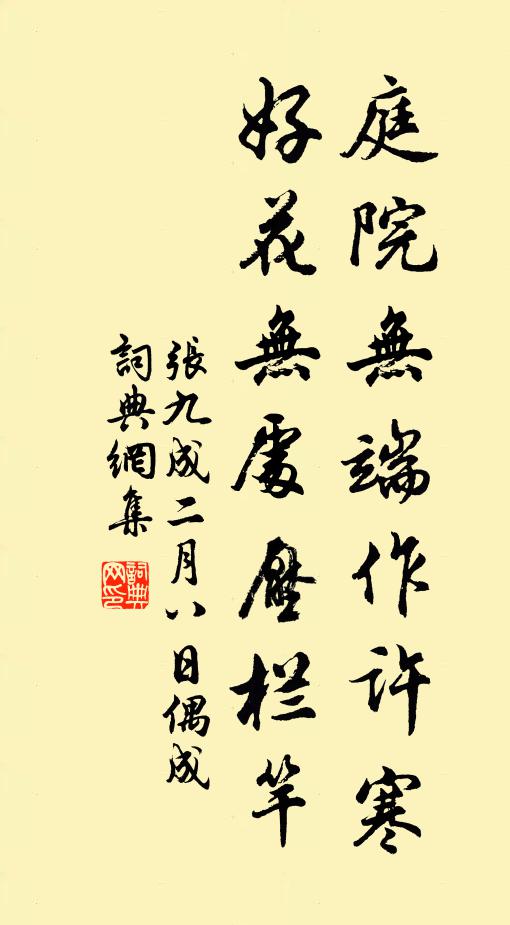 庭院無端作許寒
好花無處壓栏竿
張九成二月八日偶成
詞典網集
詞典网印